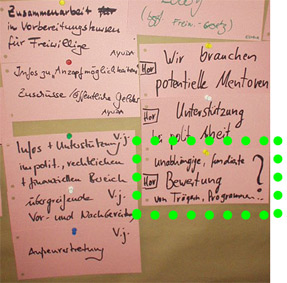 Zusammenarbeit
in Vorbereitungskursen
für Freiwillige
Ayuda
Infos zu Anzapfmöglichkeiten
Zuschüsse / öffentliche Gelder
Ayuda
Infos + Unterstützung V.j.
im polit., rechtlichen
+ finanziellen Bereich
übergreifende V.j.
Vor- und Nachbereitung
V.j.
Außenvertretung
Wir brauchen
potentielle Mentoren
Unterstützung
unabhängige, fundierte
Bewertung ?
von Trägern, Programmen...